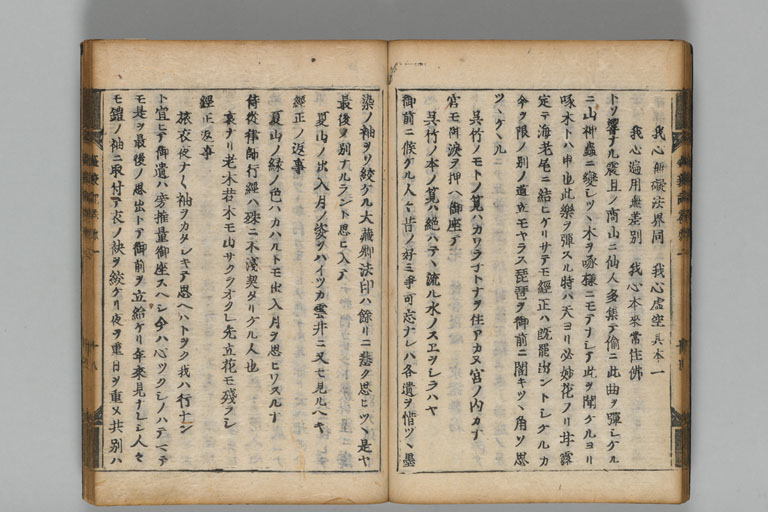 我心無礙法界同　我心虛空其本一
我心遍用無差別　我心本來常住佛
トソ響ナル震旦ノ商山ニ仙人多集テ偷ニ此曲ヲ彈シケル
ニ山神蟲ニ變シツヽ木ヲ啄樣ニモテナシテ此ヲ聞ケルヨリ
啄木トハ申也此樂ヲ彈スル時ハ天ヨリ必妙花フリ甘露
定テ海老尾ニ結ヒケリサテモ經正ハ既罷出ントシケルカ
今ヲ限ノ別ノ道立モヤラス琵琶ヲ御前ニ閣キツヽ角ソ思
ツヽケヽル
呉竹ノモトノ筧ハカワラナトナヲ住アカヌ宮ノ内カナ
宮モ御淚ヲ押ヘ御座テ
呉竹ノ本ノ筧ハ絕ハテヽ流ル水ノスエヲシラハヤ
御前ニ候ケル人々昔ノ好ミ爭可忘ナレハ各遺ヲ惜ツヽ墨
染ノ袖ヲソ絞ケル大藏卿法印ハ餘リニ悲ク思ヒツヽ是ヤ
最後ノ別ナルラント思ヒ入テ
夏山ノ出入月ノ姿ヲハイツカ雲井ニ又モ見ルヘキ
經正ノ返事
夏山ノ綠ノ色ハカハルトモ出入月ヲ思ヒワスルナ
侍從律師行經ハ殊ニ不淺契ナリケル人也
哀ナリ老木若木モ山サクラオクレ先立花モ殘ラシ
經正返事
旅衣夜ナ〳〵袖ヲカタシキテ思ヘハトヲク我ハ行ナン
ト宣ヒテ御遺ハ旁推量御座スヘシ今ハ心ツクシノハテヘテ
モ是ヲ最後ノ思出トテ御前ヲ立給ケリ年來見ナレシ人々
モ鎧ノ袖ニ取付テ衣ノ袂ヲ絞ケリ夜ヲ重日ヲ重メ共別ハ